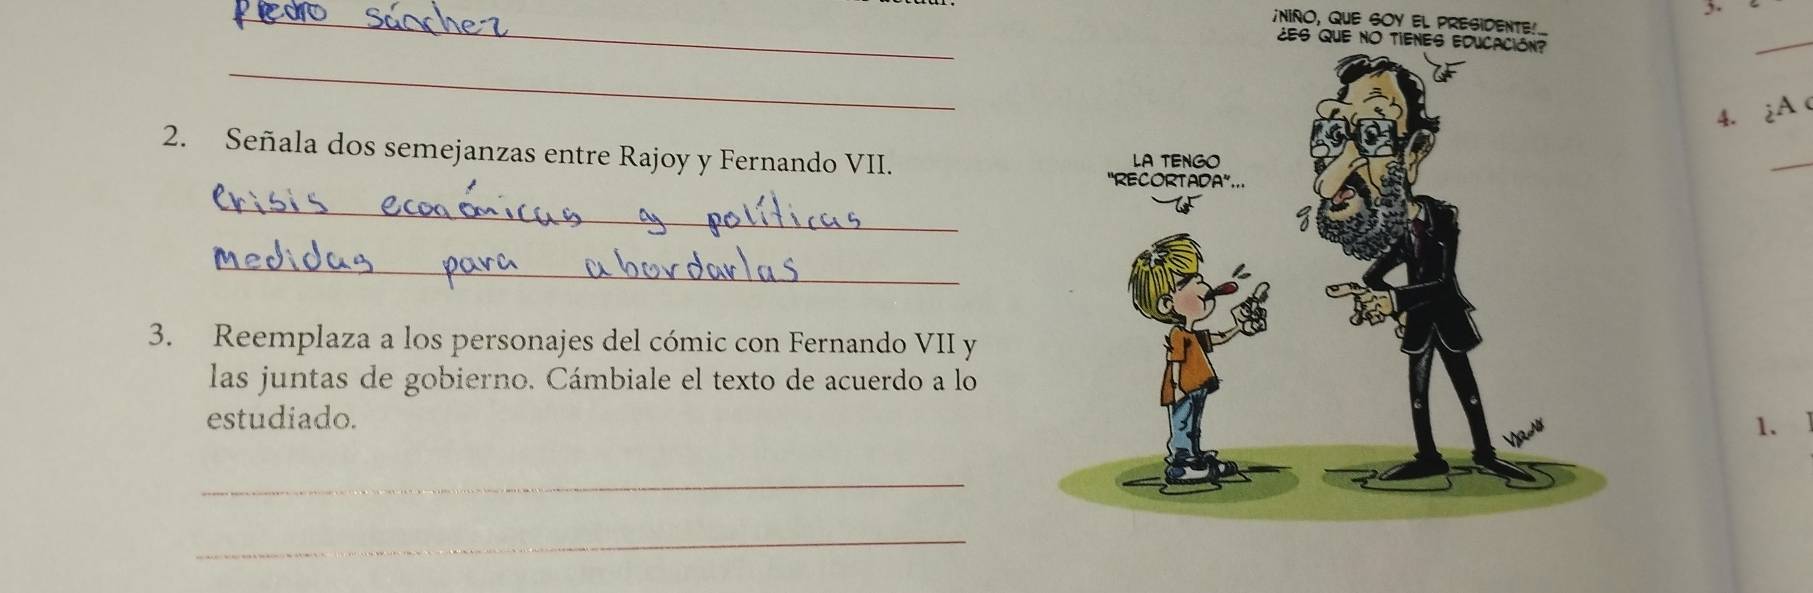 Pedro sánchez
2. Señala dos semejanzas entre Rajoy y Fernando VII.
Crisis económicas y políticas
medidas para abordarlas
3. Reemplaza a los personajes del cómic con Fernando VII y
las juntas de gobierno. Cámbiale el texto de acuerdo a lo
estudiado.
¡NIÑO, QUE SOY EL PRESIDENTE!...
¿ES QUE NO TIENES EDUCACIÓN?
LA TENGO
"RECORTADA"...
3.
4. ¿A
1.